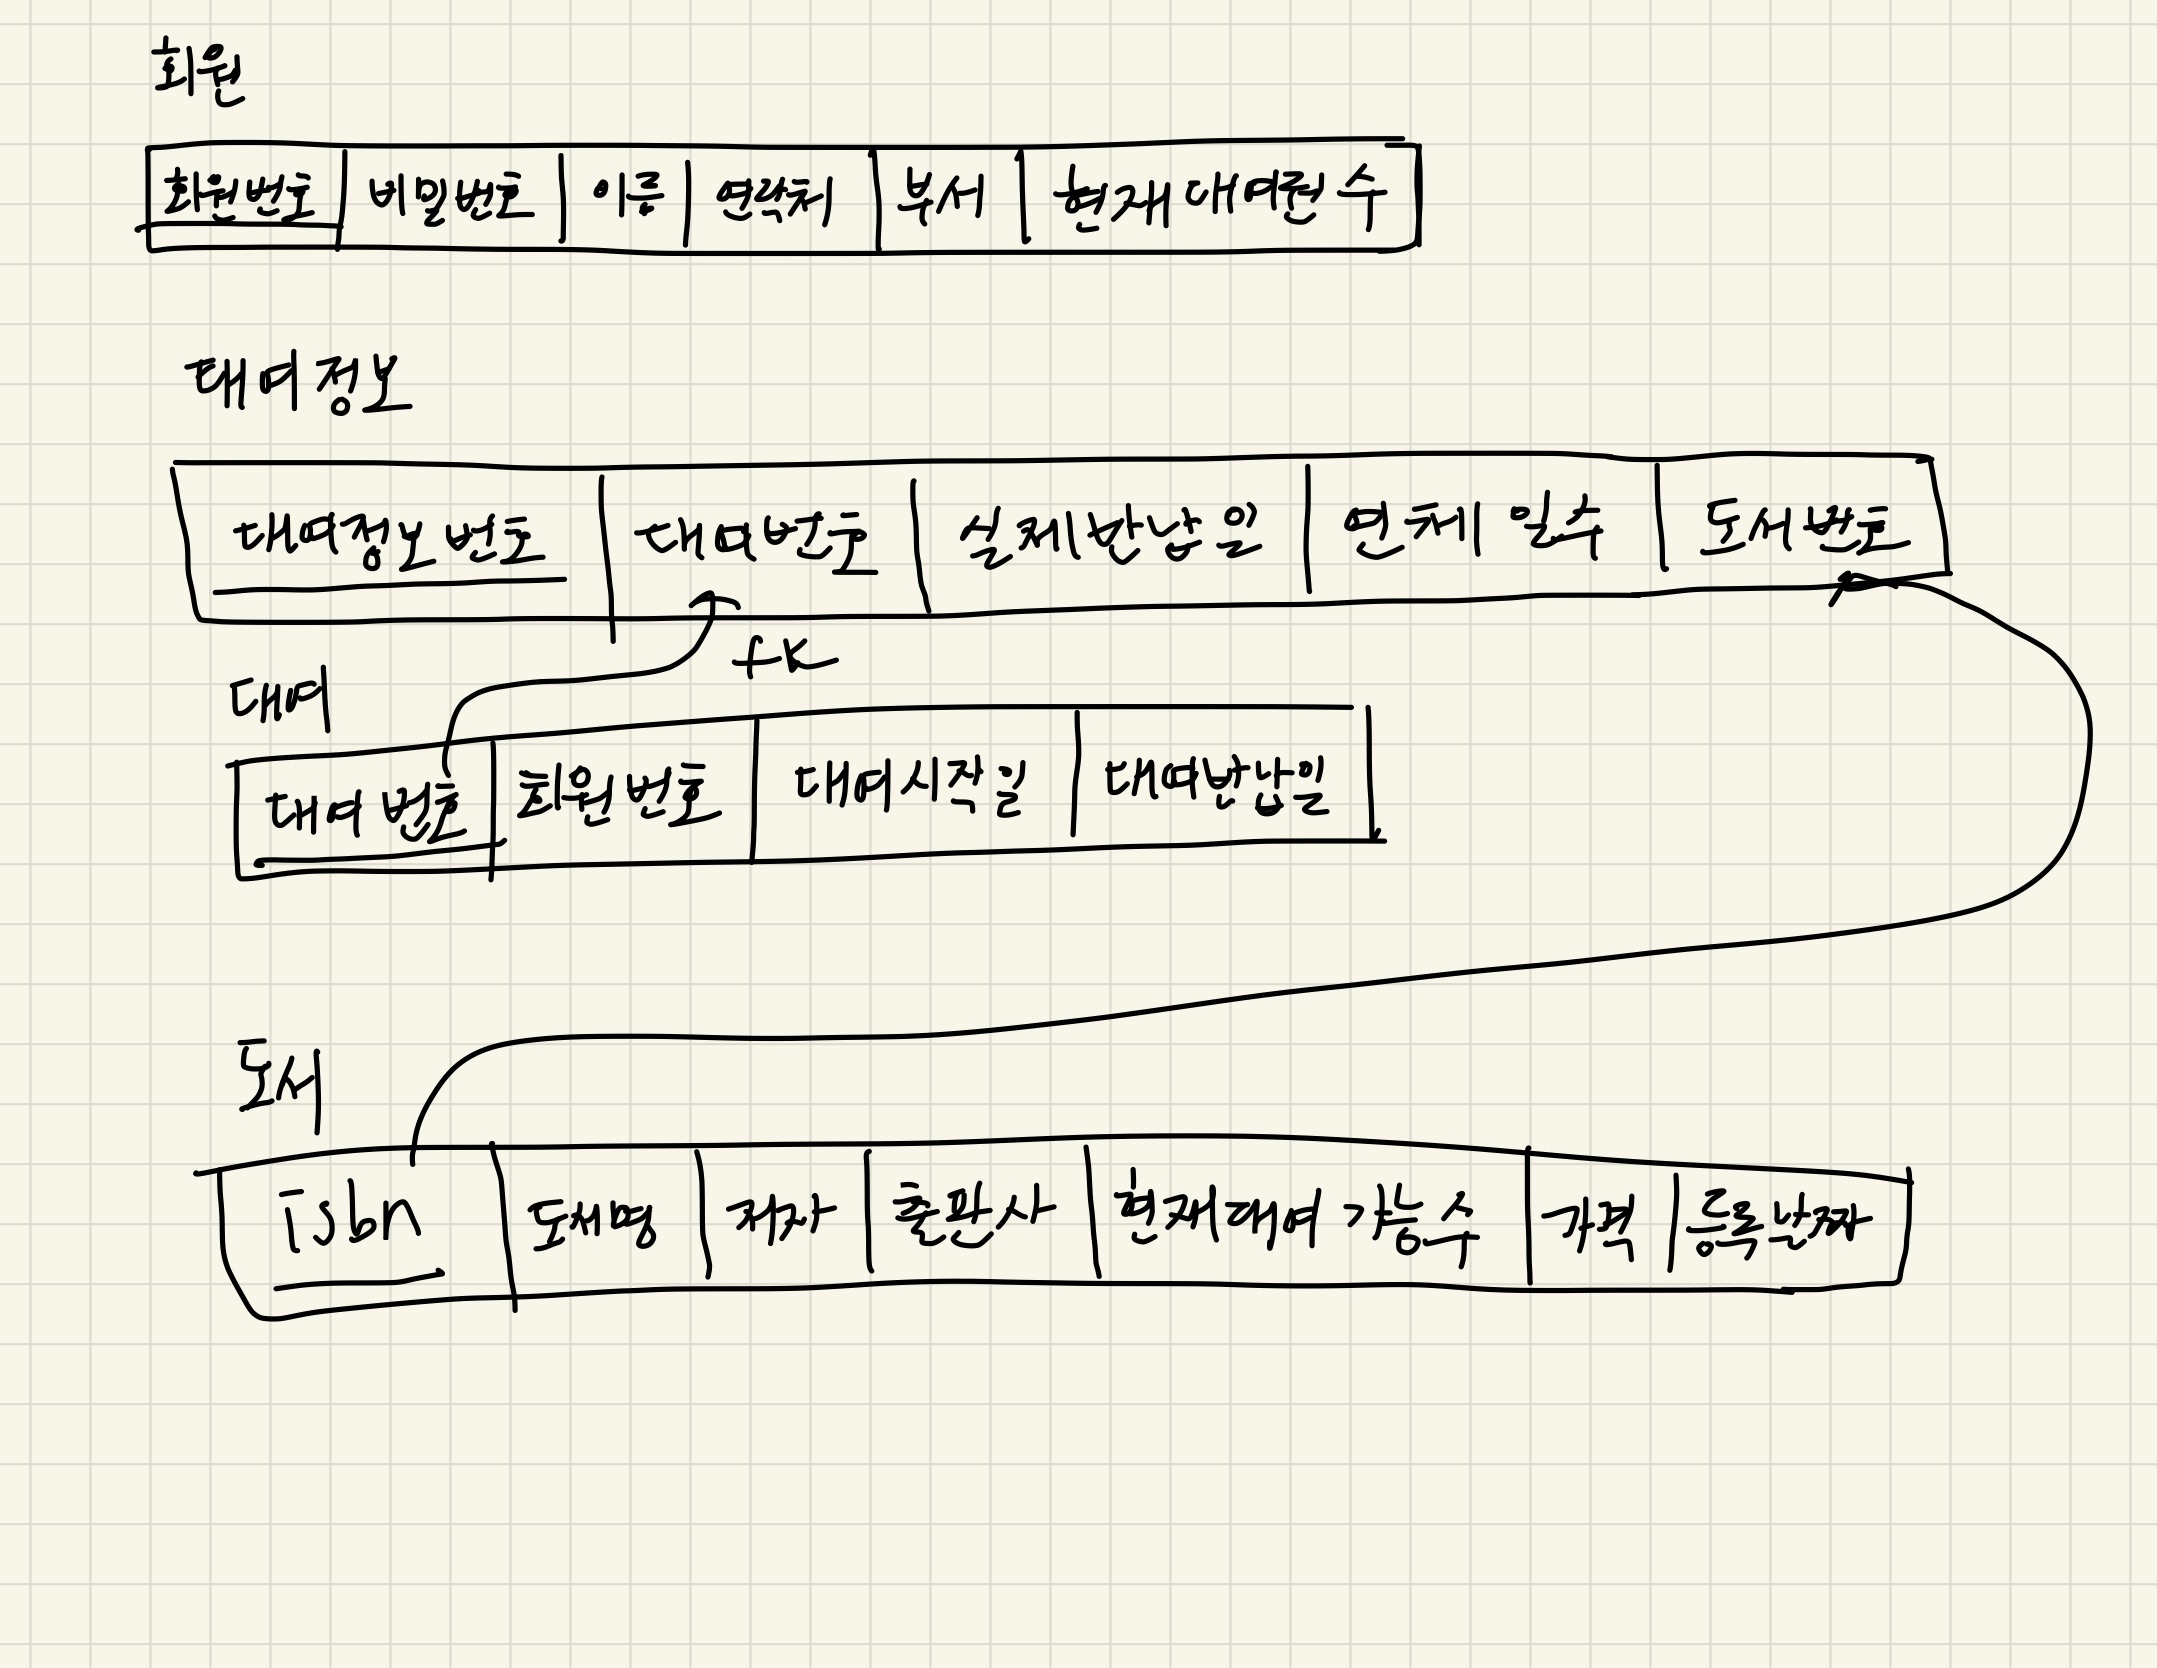 회원
회원번호 비밀번호 이름 연락처 부서 현재 대여권 수
대여정보
대여정보 번호 대여번호 실제반납일 연체 일수 도서번호
fk
대여
대여 번호 회원번호 대여시작일 대여반납일
도서
isbn 도서명 저자 출판사 현재대여 가능수 가격 등록난짜